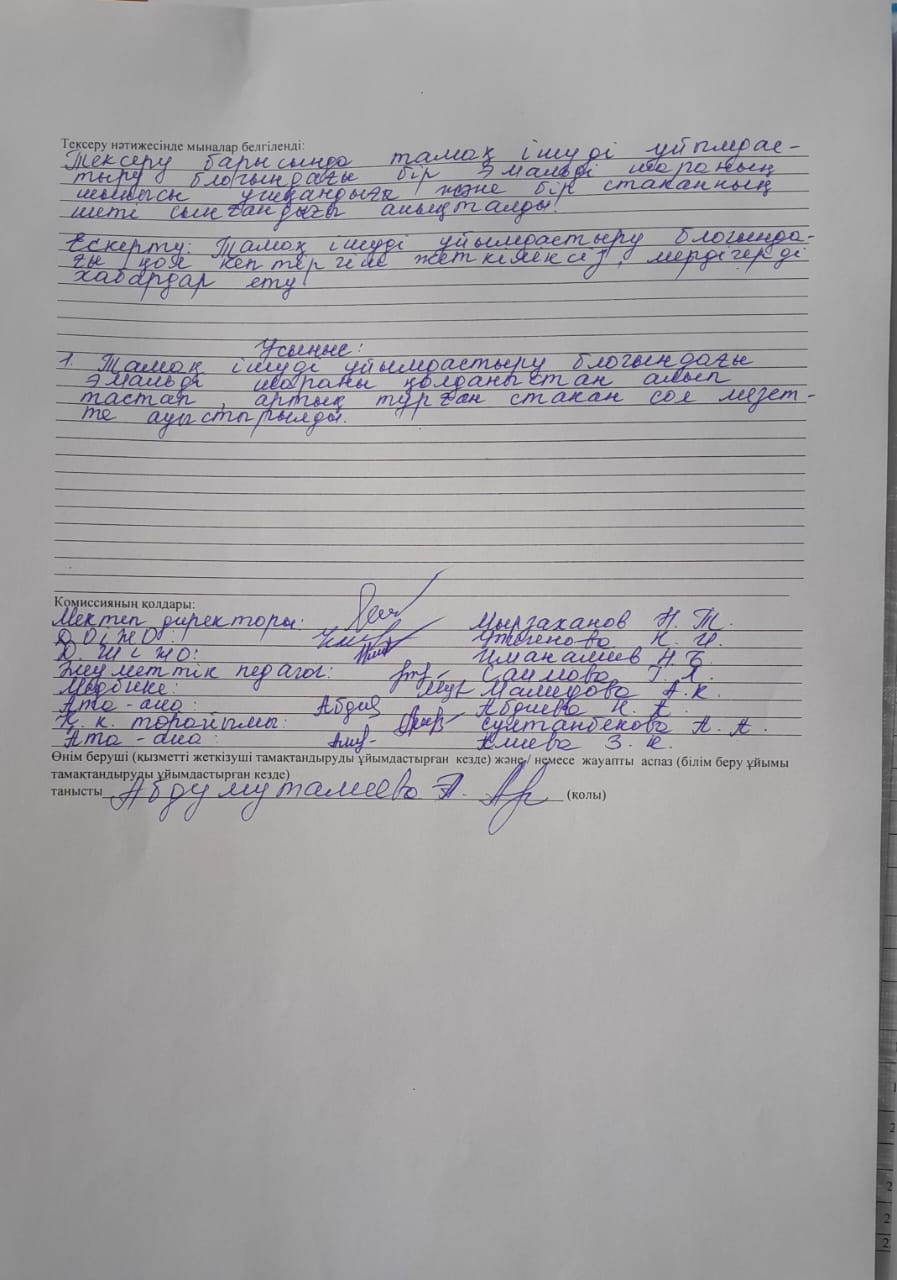 Тексеру нәтижесінде мыналар белгіленді:
Тексеру барысында тамақ ішуді ұйымдас-
тыру блогындағы бір эмальді шараның
шынысы ушқандығы және бір стаканның
шеті сынғандығы анықталды.
Ескерту: Тамақ ішуді ұйымдастыру блогында-
ғы қол кептергіш жеткіліксіз, мердігерді
хабардар ету!
Ұсыныс:
1. Тамақ ішуді ұйымдастыру блогындағы
эмальді шараны қолданыстан алып
тастап, артық тұрған стакан сол мезет-
те ауыстырылды.
Комиссияның қолдары:
Мектеп директоры: Мырзаханов Н. Т.
Д.О.І.Ж.О: Утегенова К. И.
Д. Ш І Ж О: Иманалиев Н. Б.
Әлеуметтік педагог: Саимова Г. А.
Медбике: Мамедова А. К.
Ата-ана: Абдиева Н. А.
Қ. к. төрайымы: Султанбекова А. А.
Ата-ана: Алиева З. К.
Өнім беруші (қызметті жеткізуші тамақтандыруды ұйымдастырған кезде) және / немесе жауапты аспаз (білім беру ұйымы
тамақтандыруды ұйымдастырған кезде)
танысты Абдумуталиева А. (қолы)